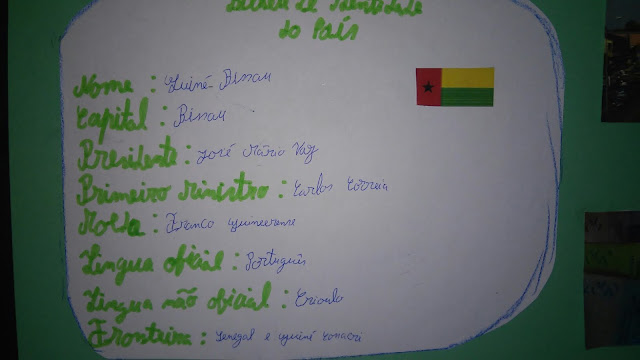 Bilhete de Identidade
do País
Nome : Guiné-Bissau
Capital : Bissau
Presidente : José Mário Vaz
Primeiro ministro : Carlos Correia
Moeda : Franco guineense
Língua oficial : Português
Língua não oficial : Crioulo
Fronteira : Senegal e guiné Conacri